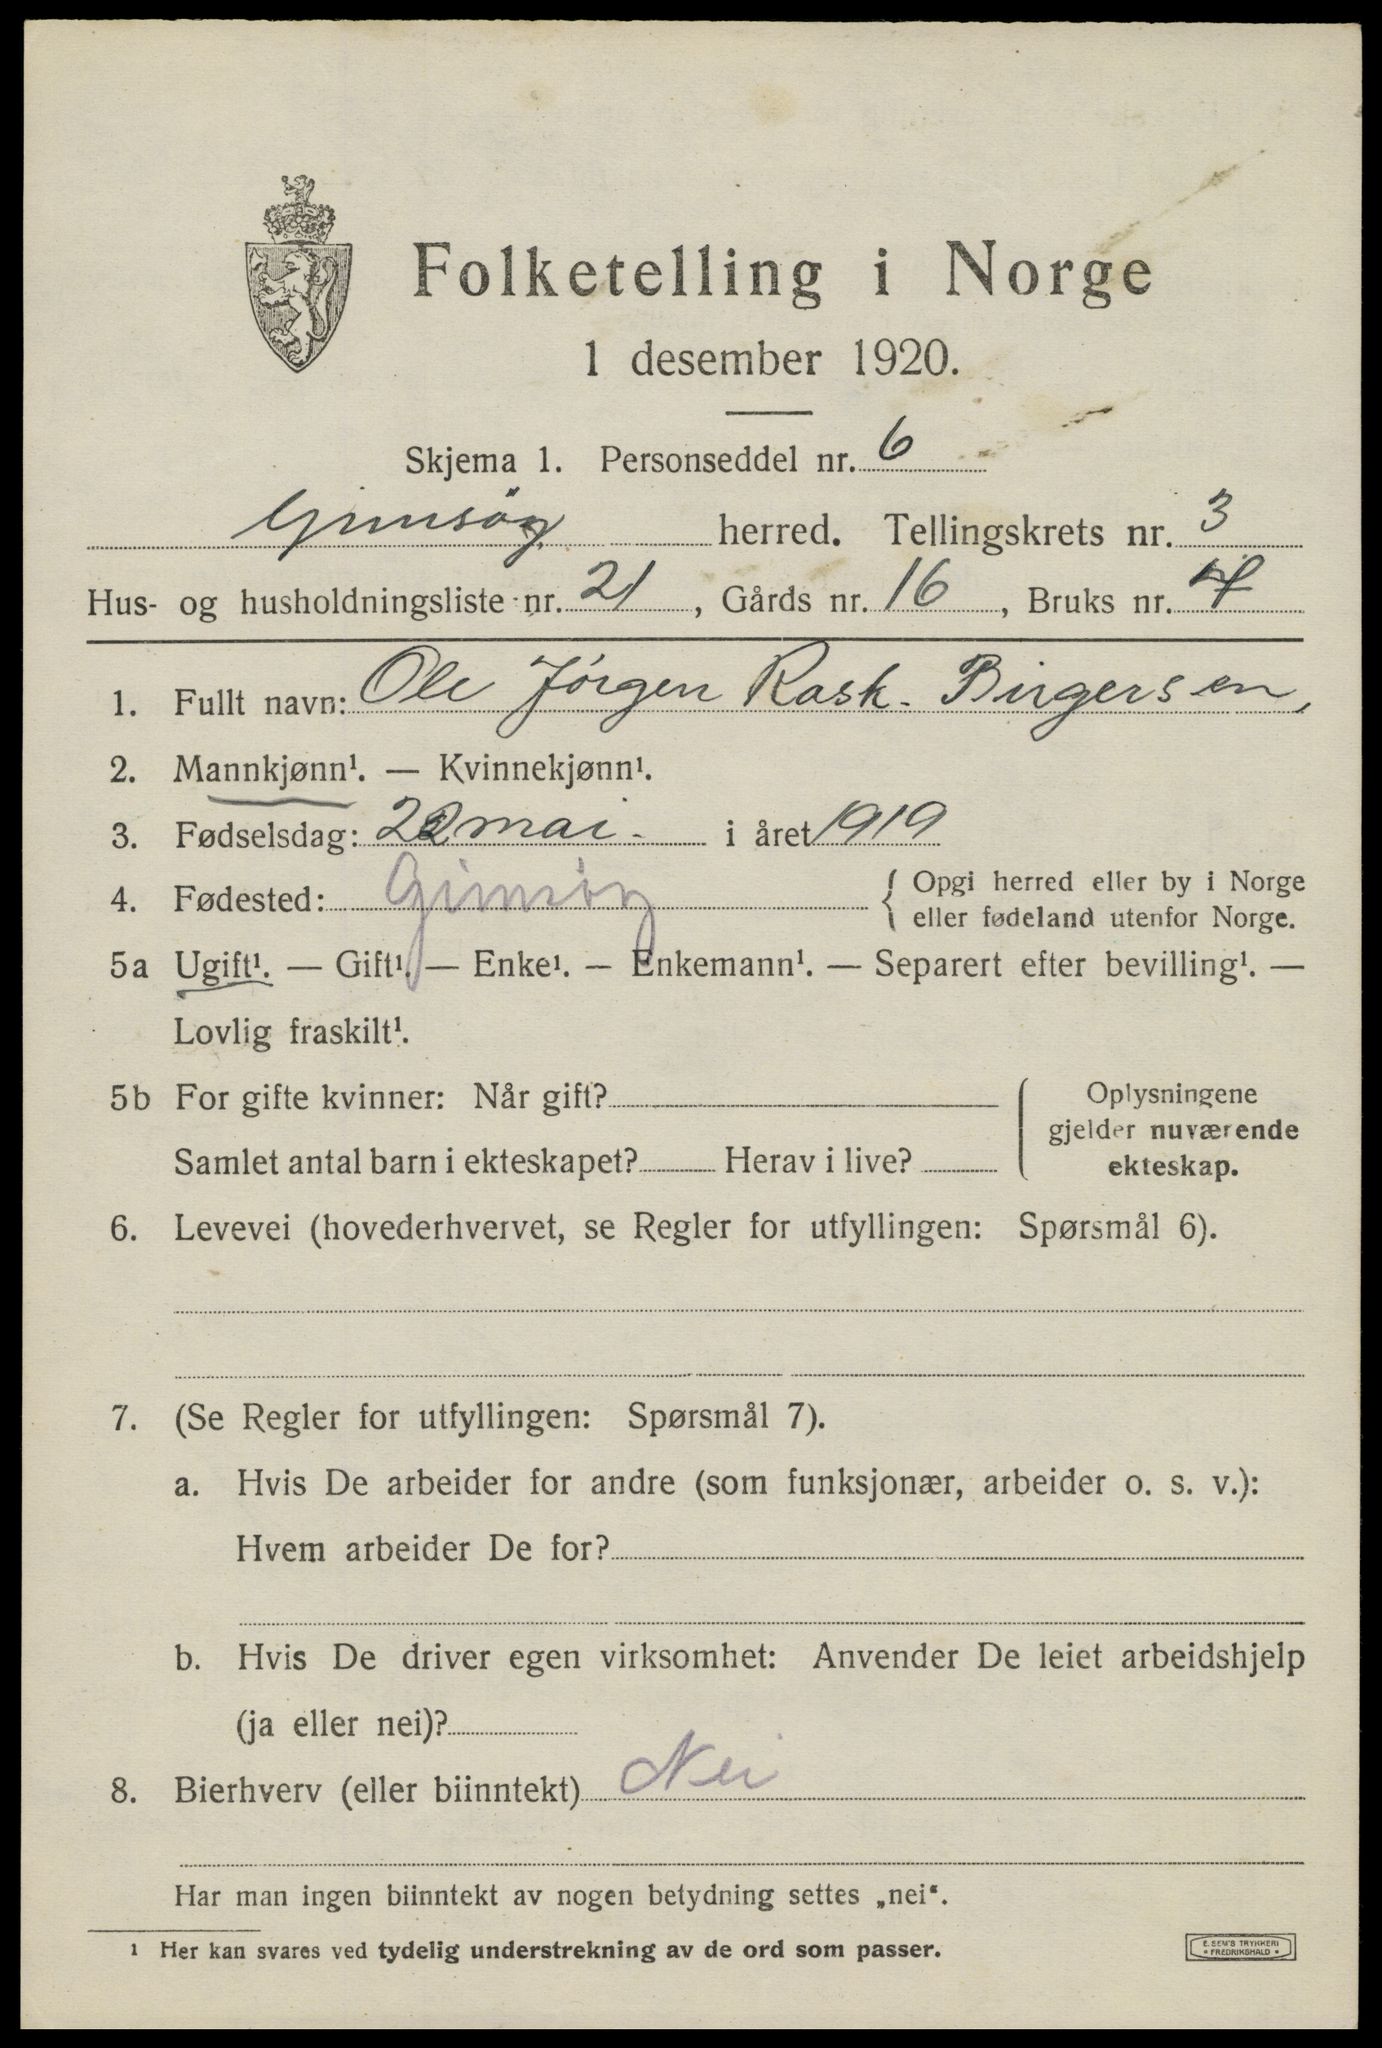 Folketelling i Norge
1 desember 1920.
Skjema 1. Personseddel nr. 6
Gimsöy herred. Tellingskrets nr. 3
Hus- og husholdningsliste nr. 21, Gårds nr. 16, Bruks nr.
1. Fullt navn: Ole Jörgen Rask. Birgersen,
2. Mannkjønn¹. — Kvinnekjønn¹.
3. Fødselsdag: 22 mai. i året 1919
4. Fødested: Gimsöy { Opgi herred eller by i Norge
eller fødeland utenfor Norge.
5a Ugift¹. — Gift¹. — Enke¹. — Enkemann¹. — Separert efter bevilling¹. —
Lovlig fraskilt¹.
5b For gifte kvinner: Når gift?
Samlet antal barn i ekteskapet? Herav i live?
Oplysningene
gjelder nuværende
ekteskap.
6. Levevei (hovederhvervet, se Regler for utfyllingen: Spørsmål 6).
7. (Se Regler for utfyllingen: Spørsmål 7).
a. Hvis De arbeider for andre (som funksjonær, arbeider o. s. v.):
Hvem arbeider De for?
b. Hvis De driver egen virksomhet: Anvender De leiet arbeidshjelp
(ja eller nei)?
8. Bierhverv (eller biinntekt) Nei
Har man ingen biinntekt av nogen betydning settes „nei“.
¹ Her kan svares ved tydelig understrekning av de ord som passer.
E. SEM'S TRYKKERI
• FREDRIKSHALD •